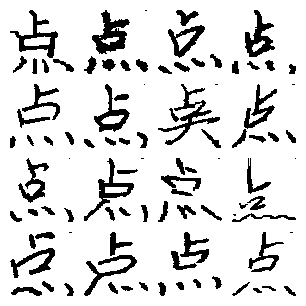 点点点点
点点点点
点点点点
点点点点